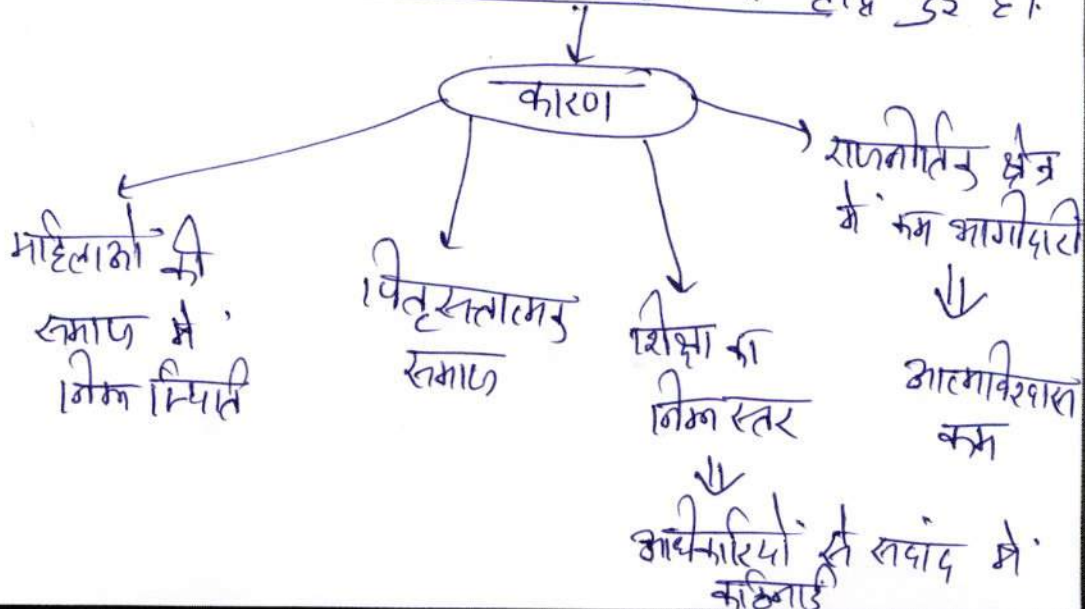 कारण
महिलाओं की
समाज में
निम्न स्थिति
पितृसत्तात्मक
समाज
शिक्षा का
निम्न स्तर
अधिकारियों से संवाद में
कठिनाई
राजनीतिक क्षेत्र
में कम भागीदारी
आत्मविश्वास
कम